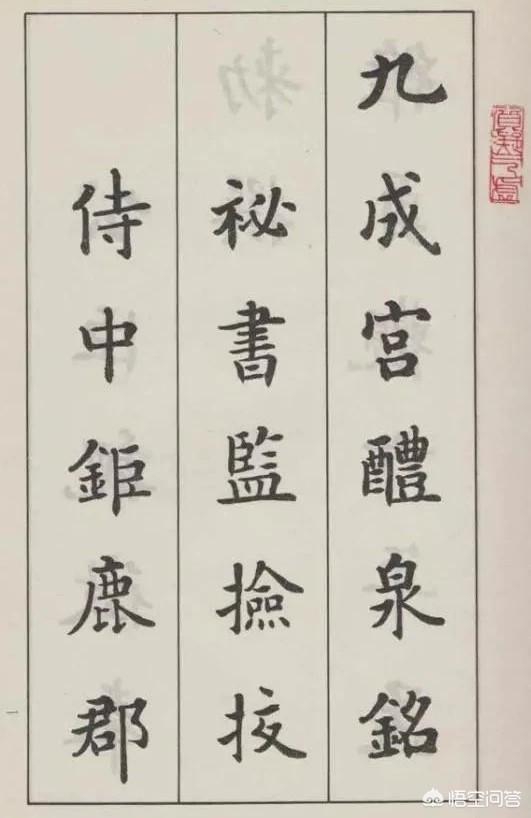 九成宫醴泉銘
祕書監撿挍
侍中鉅鹿郡
一
悟空问答